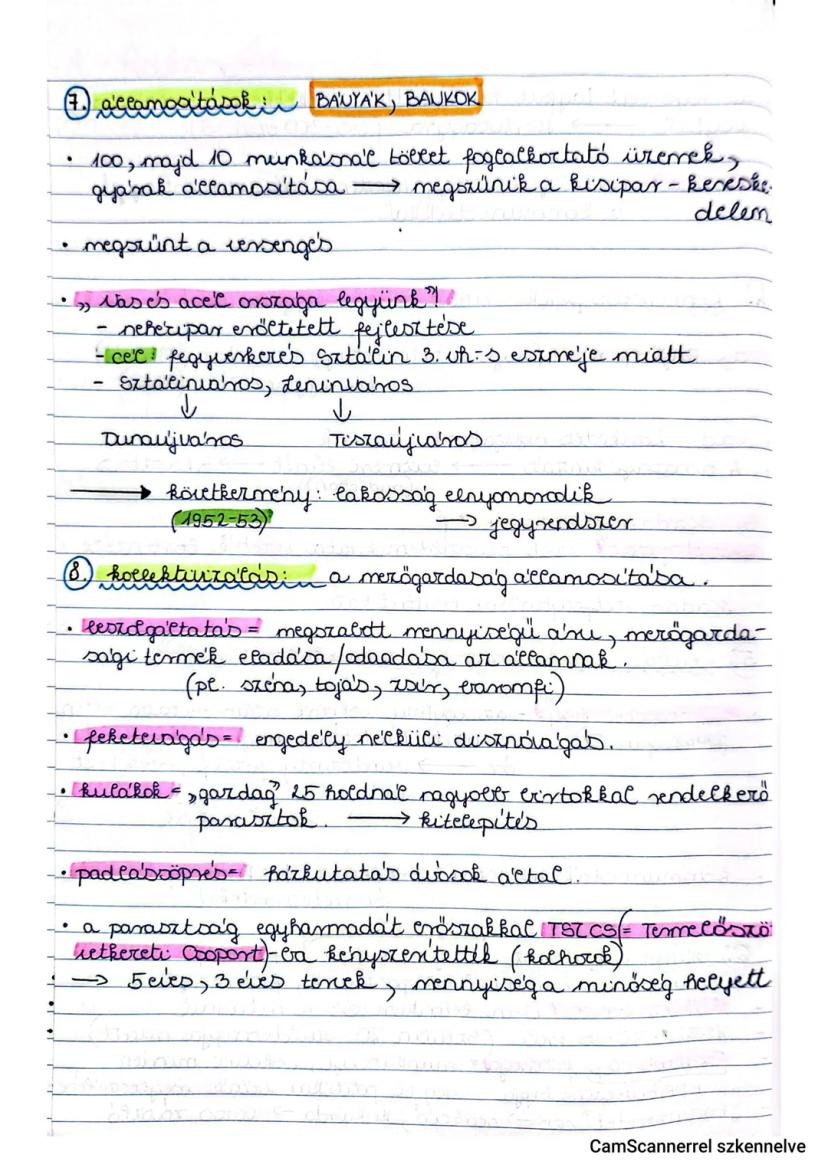 7. államosítások: BÁNYÁK, BANKOK
• 100, majd 10 munkásnál többet foglalkoztató üzemek,
gyárak államosítása → megszűnik a kisipar - kereske-
delem
• megszűnt a versengés
• „Vas és acél országa legyünk"!
- nehézipar erőltetett fejlesztése
- cél: fegyverkezés Sztálin 3. vh.-s eszméje miatt
- Sztálinváros, Leninváros
↓ ↓
Dunaújváros Tiszaújváros
→ következmény: lakosság elnyomorodik
(1952-53) → jegyrendszer
8. kollektivizálás: a mezőgazdaság államosítása.
• beszolgáltatás = megszabott mennyiségű áru, mezőgazda-
sági termék eladása/odaadása az államnak.
(pl. széna, tojás, zsír, baromfi)
• feketevágás = engedély nélküli disznóvágás.
• kulákok = „gazdag" 25 holdnál nagyobb birtokkal rendelkező
parasztok. → kitelepítés
• padlássöprés = házkutatás ávósok által.
• a parasztság egyharmadát erőszakkal TSZCS (= Termelőszö
vetkezeti Csoport)-ba kényszerítettík (kolhozok)
→ 5 éves, 3 éves tervek, mennyiség a minőség helyett
CamScannerrel szkennelve